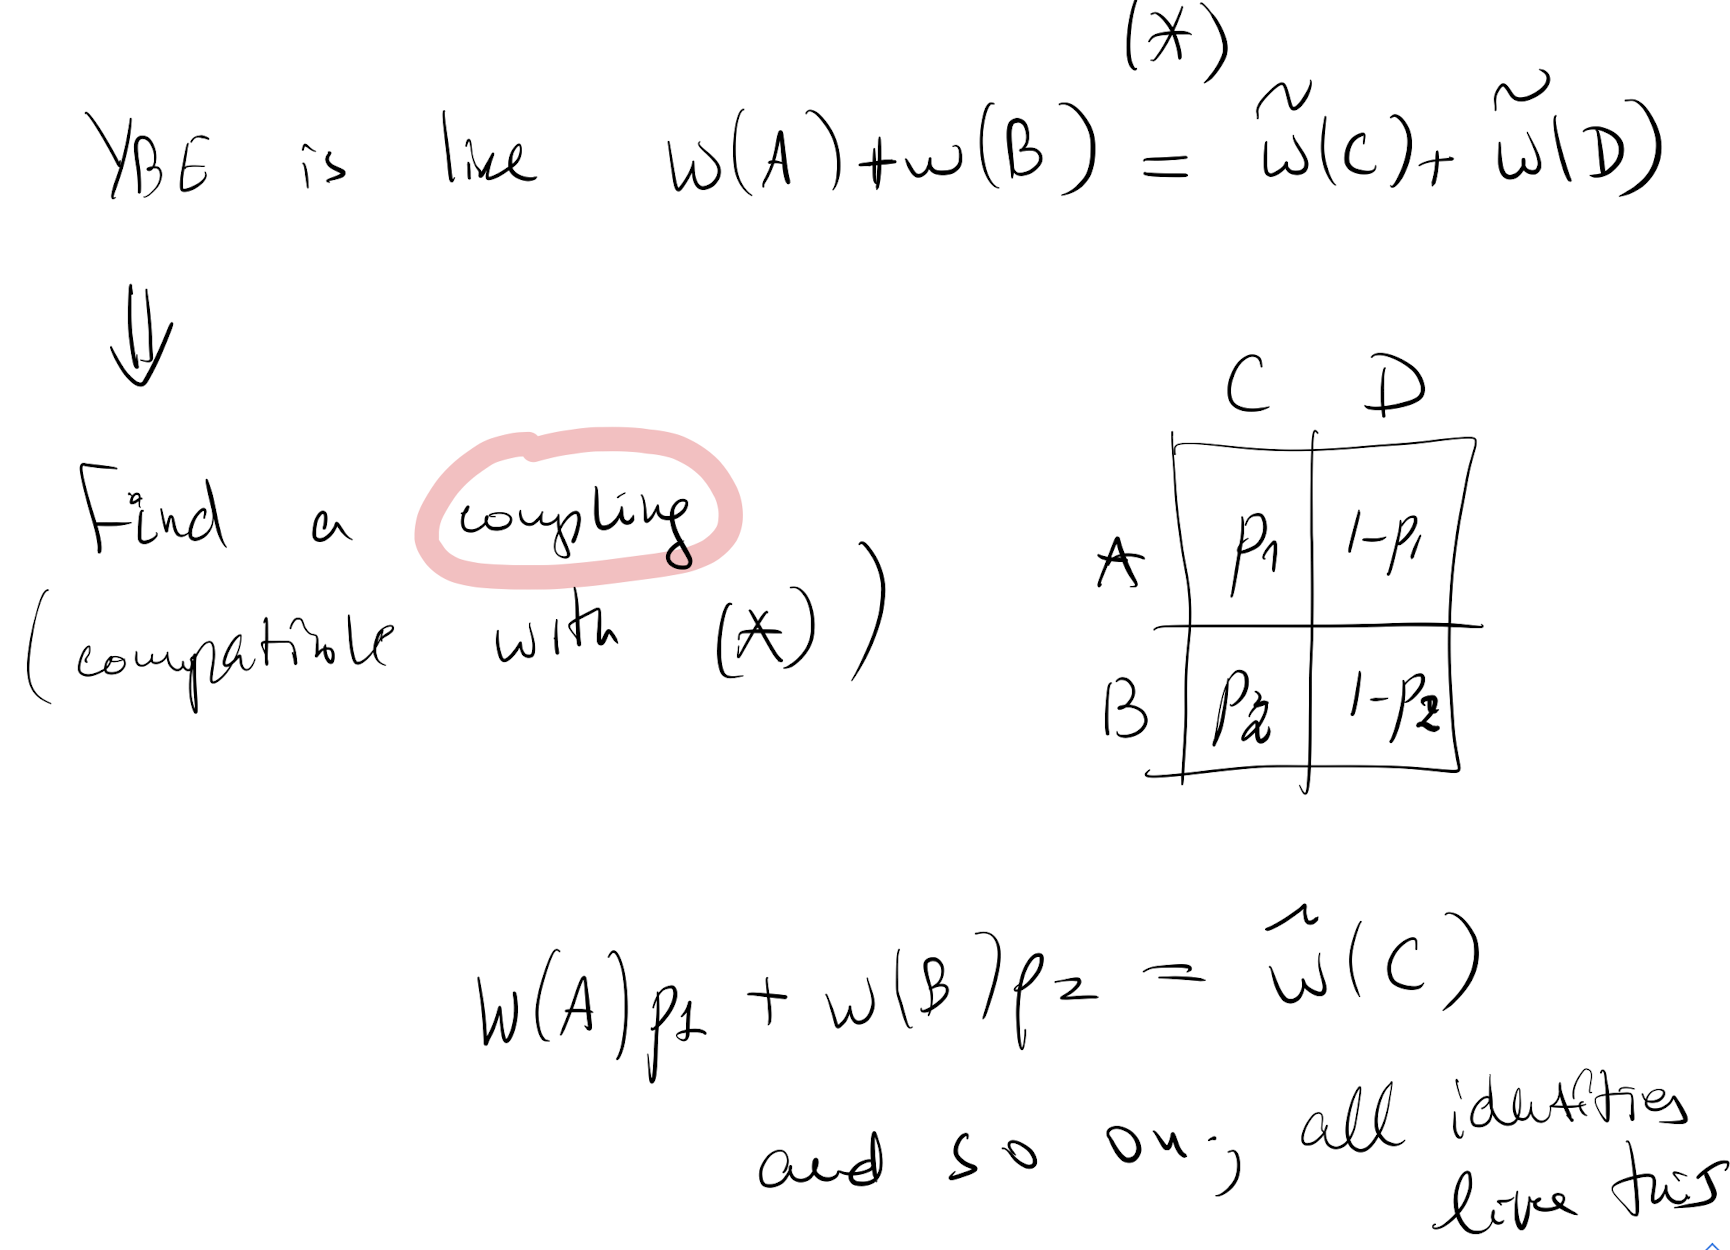 (*)
YBE is like w(A)+w(B) = w̃(C)+ w̃(D)
⇓
C D
Find a coupling
A p₁ 1-p₁
(compatible with (*))
B p₂ 1-p₂
w(A)p₁ + w(B)p₂ = w̃(C)
and so on; all identities
like this